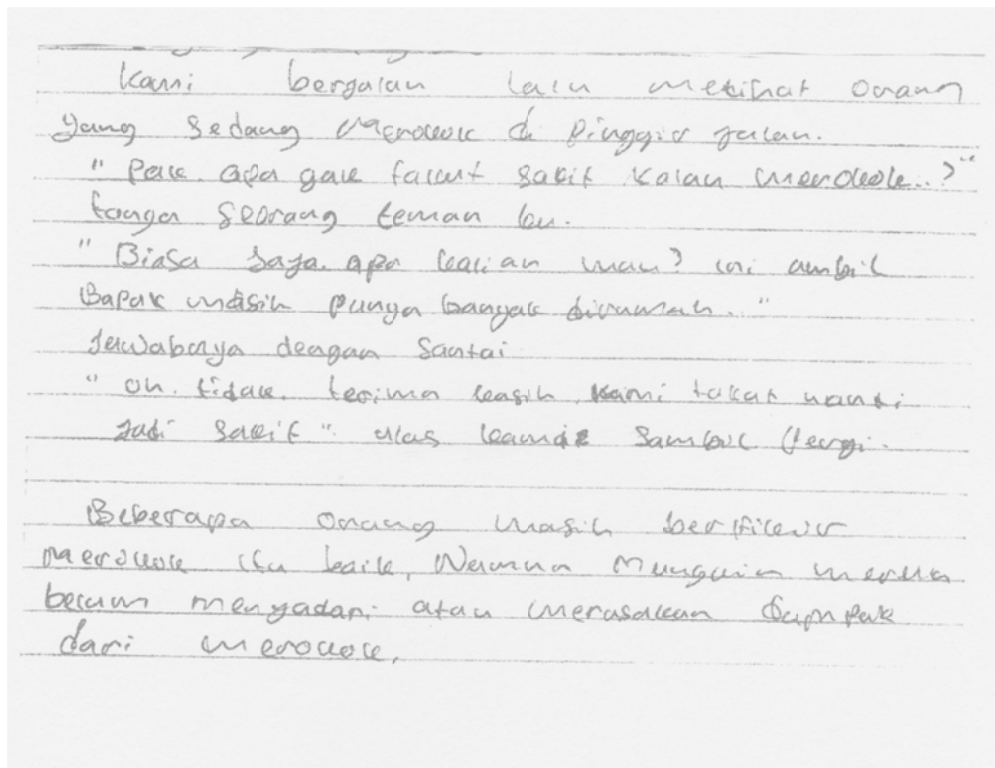 Kami berjalan lalu melihat orang
yang sedang merokok di pinggir jalan.
"Pak. apa gak takut sakit kalau merokok..?"
tanya seorang teman ku.
"Biasa saja. apa kalian mau? ini ambil
Bapak masih punya banyak dirumah.."
Jawabnya dengan Santai
"oh. tidak. terima kasih. Kami takut nanti
Jadi sakit". kami sambil pergi.
Beberapa orang masih berfikir
merokok itu baik, Namun Mungkin mereka
belum menyadari atau merasakan dampak
dari merokok.